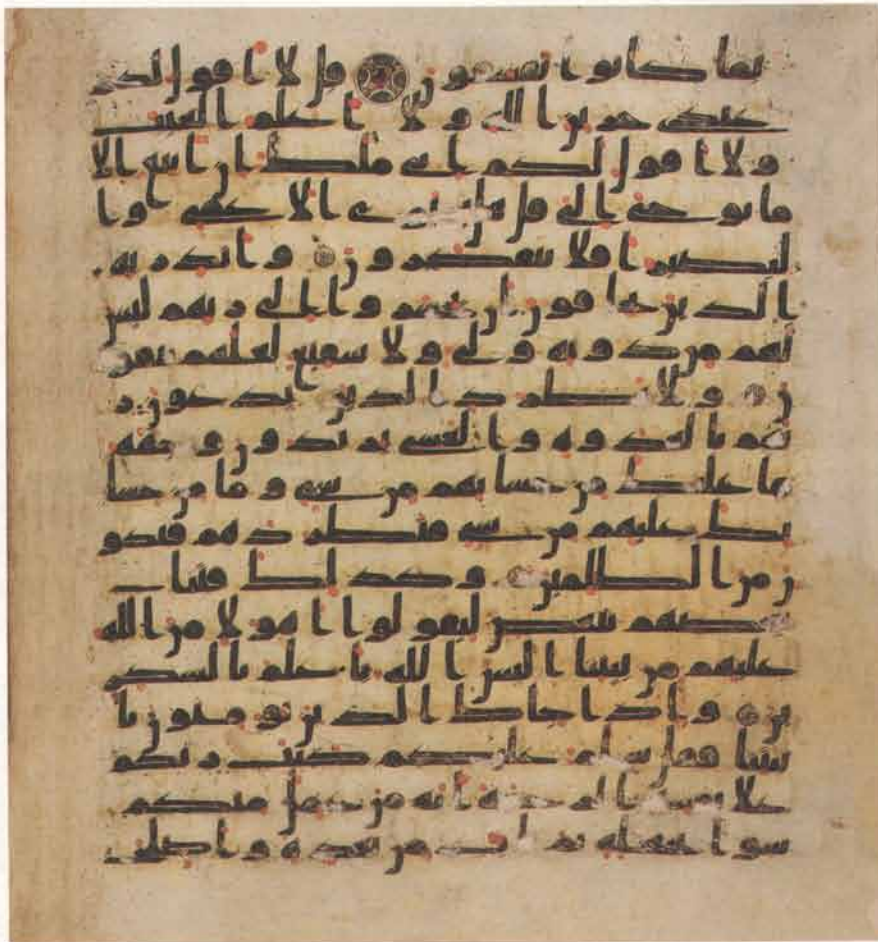 بما كانوا يفسقون قل لا اقول لكم
عندي خزين الله ولا اعلم الغيب
ولا اقول لكم اني ملك ان اتبع الا
ما يوحى الي قل هل يستوي الاعمى وا
لبصير افلا تتفكرون وانذر به
الذين يخافون ان يحشروا الى ربهم ليس
لهم من دونه ولي ولا شفيع لعلهم يتقو
ن ولا تطرد الذين يدعون ر
بهم بالغدوه والعشي يريدون وجهه
ما عليك من حسابهم من شي وما من حسا
بك عليهم من شي فتطردهم فتكو
ن من الظلمين وكذلك فتنا
بعضهم ببعض ليقولوا اهولا من الله
عليهم من بيننا اليس الله باعلم بالشكر
ين واذا جاك الذين يومنون با
يتنا فقل سلم عليكم كتب ربكم
على نفسه الرحمه انه من عمل منكم
سوا بجهله ثم تاب من بعده واصلح